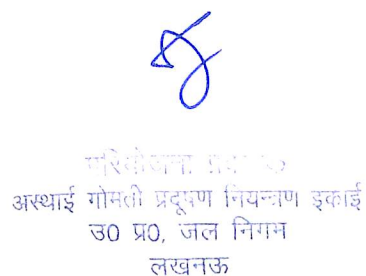 परियोजना
अस्थाई गोमती प्रदूषण नियन्त्रण इकाई
उ0 प्र0, जल निगम
लखनऊ